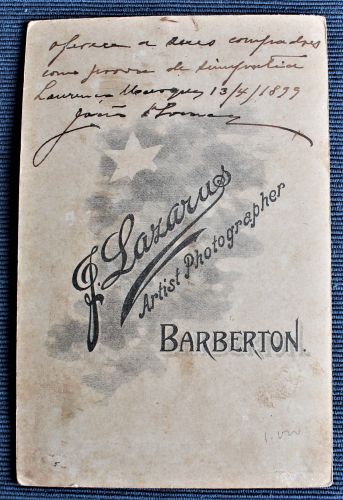 oferece a seus compadres
como prova de simpatia
Lourenco Marques 13/4/1899
João Thomaz
J. Lazarus
Artist Photographer
BARBERTON.